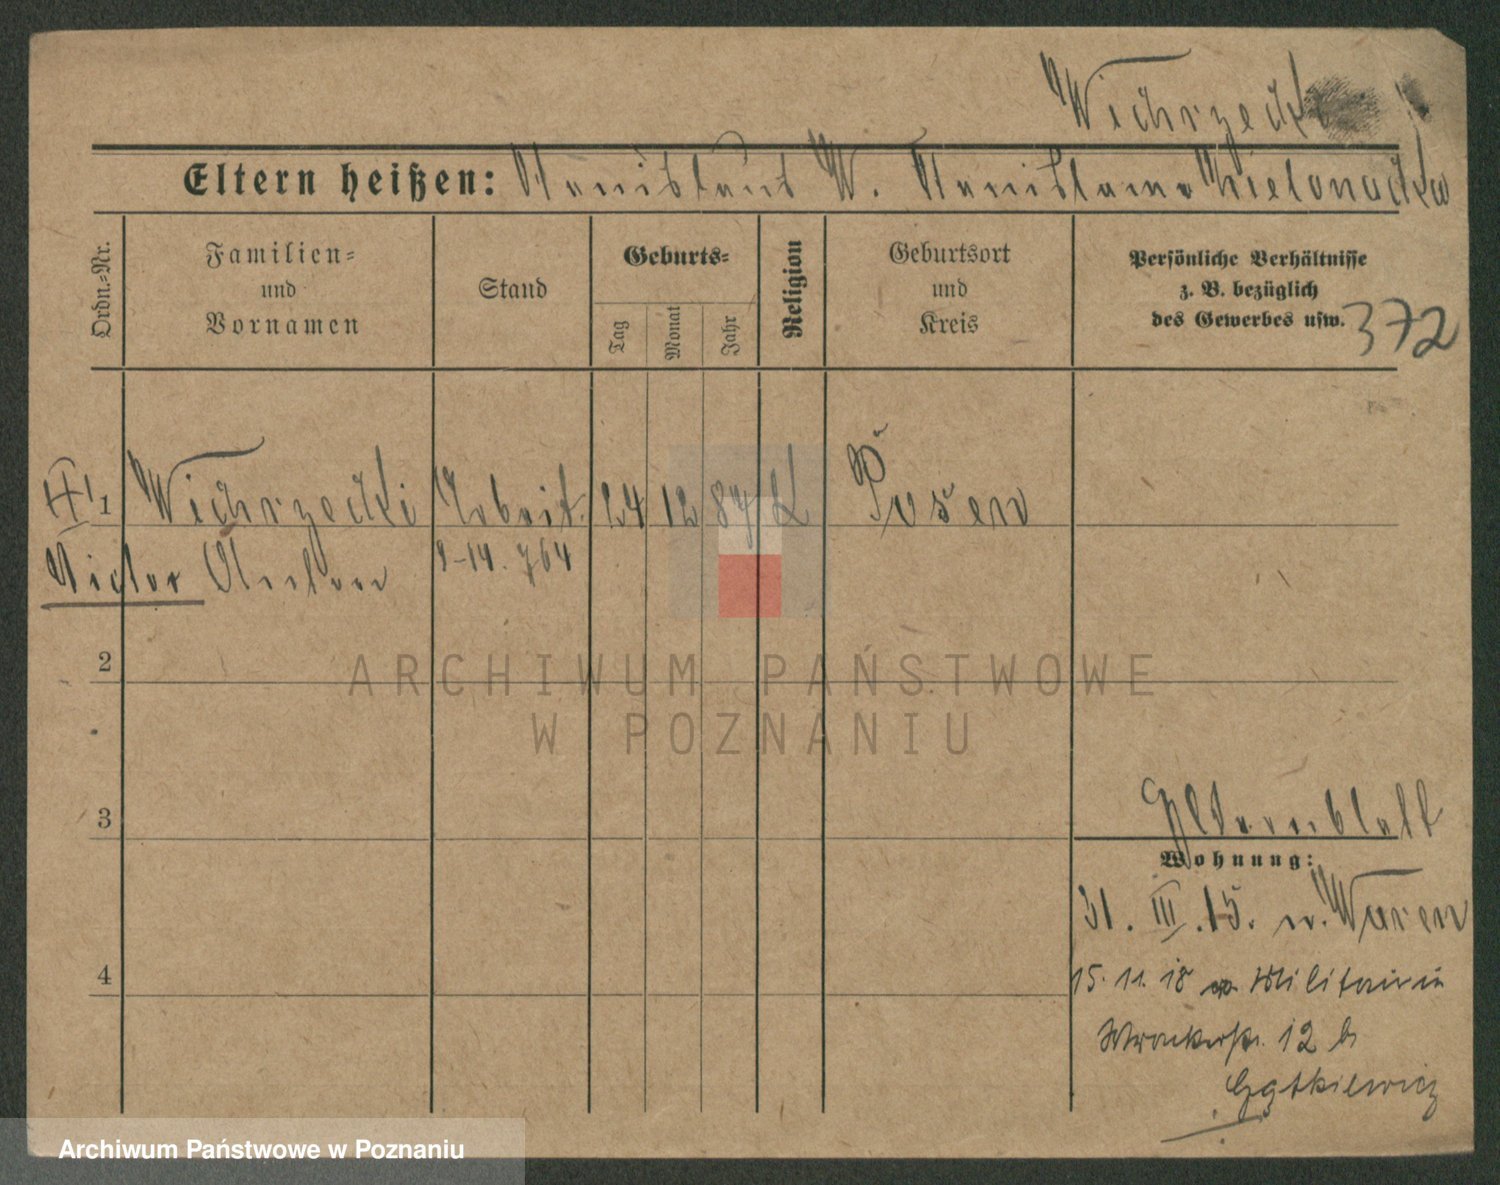 Wichrzecki
Eltern heißen: Stanislaus W. Stanislawa Wielonacka
Ordn.-Nr.
Familien-
und
Vornamen
Stand
Geburts-
Tag
Monat
Jahr
Religion
Geburtsort
und
Kreis
Persönliche Verhältnisse
z. B. bezüglich
des Gewerbes usw.
372
1 Wichrzecki Arbeit. 24 12 87 K Posen
Victor Anton
2
3
4
Elternblatt
Wohnung:
31. III. 15. n. Waren
15. 11. 18 Militär in
Wronkerstr. 12 b
ARCHIWUM PAŃSTWOWE
W POZNANIU
Archiwum Państwowe w Poznaniu